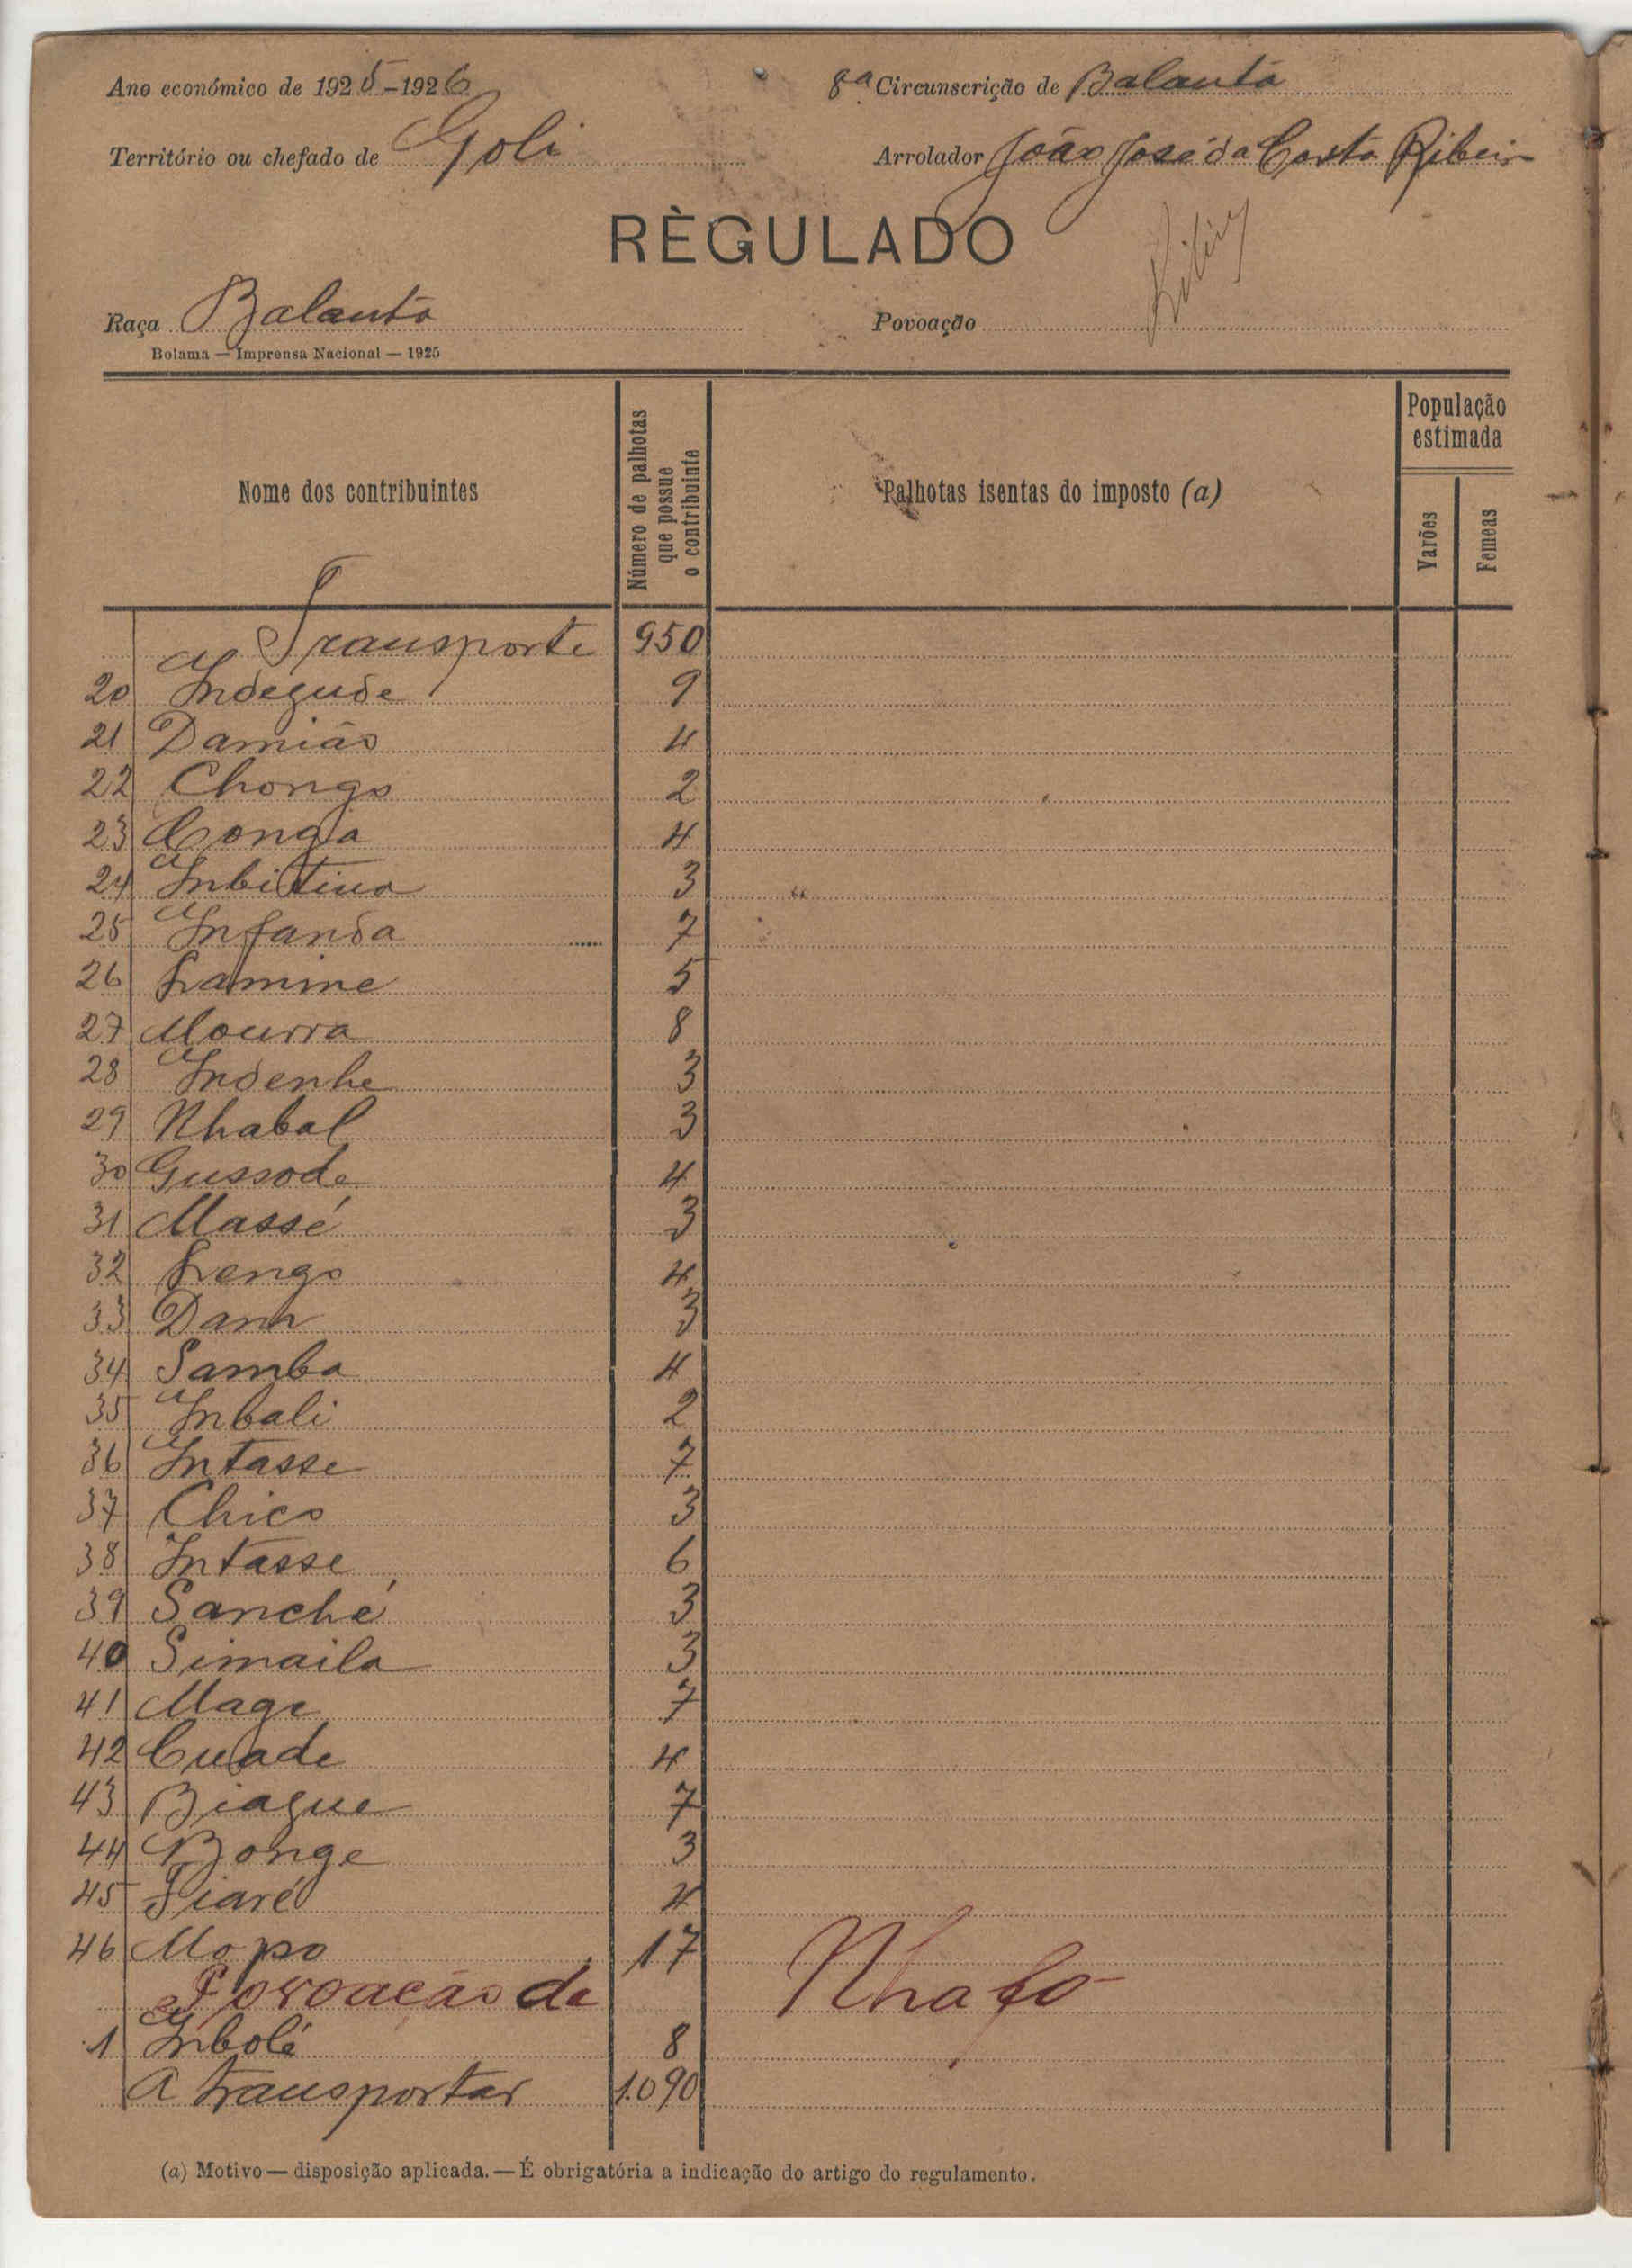 Ano económico de 1925-1926 8ª Circunscrição de Balanta
Território ou chefado de Goli Arrolador João José da Costa Ribeiro
RÈGULADO
Raça Balanta Povoação
Bolama — Imprensa Nacional — 1925
Nome dos contribuintes Número de palhotas que possue o contribuinte Palhotas isentas do imposto (a) População estimada Varões Femeas
Transporte 950
20 Indegude 9
21 Damião 4
22 Chongo 2
23 Conga 4
24 Inbitina 3
25 Infanda 7
26 Lamine 5
27 Mourra 8
28 Indenhe 3
29 Nhabal 3
30 Gussode 4
31 Massé 3
32 Lengo 4
33 Dann 3
34 Samba 4
35 Inbali 2
36 Intasse 7
37 Chico 3
38 Intasse 6
39 Sanché 3
40 Simaila 3
41 Mage 7
42 Cuade 4
43 Biague 7
44 Bonge 3
45 Siaré 4
46 Mopo 17
Povoação de Nhafo
1 Inbolé 8
A transportar 1.090
(a) Motivo — disposição aplicada. — É obrigatória a indicação do artigo do regulamento.